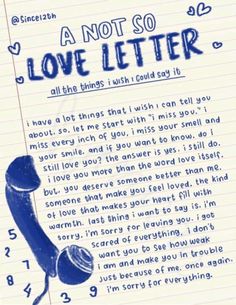 @Since12th
A NOT SO
LOVE LETTER
all the things i wish i could say it
i have a lot things that i wish i can tell you
about. so, let me start with "i miss you." i
miss every inch of you, i miss your smell and
your smile. and if you want to know, do i
still love you? the answer is yes. i still do.
i love you more than the word love itself.
but. you deserve someone better than me.
someone that make you feel loved. the kind
of love that makes your heart fill with
warmth. last thing i want to say is. i'm
sorry. i'm sorry for leaving you. i got
scared of everything. i don't
want you to see how weak
i am and make you in trouble
just because of me. once again.
i'm sorry for everything.
2
5
8
7
4
3
9